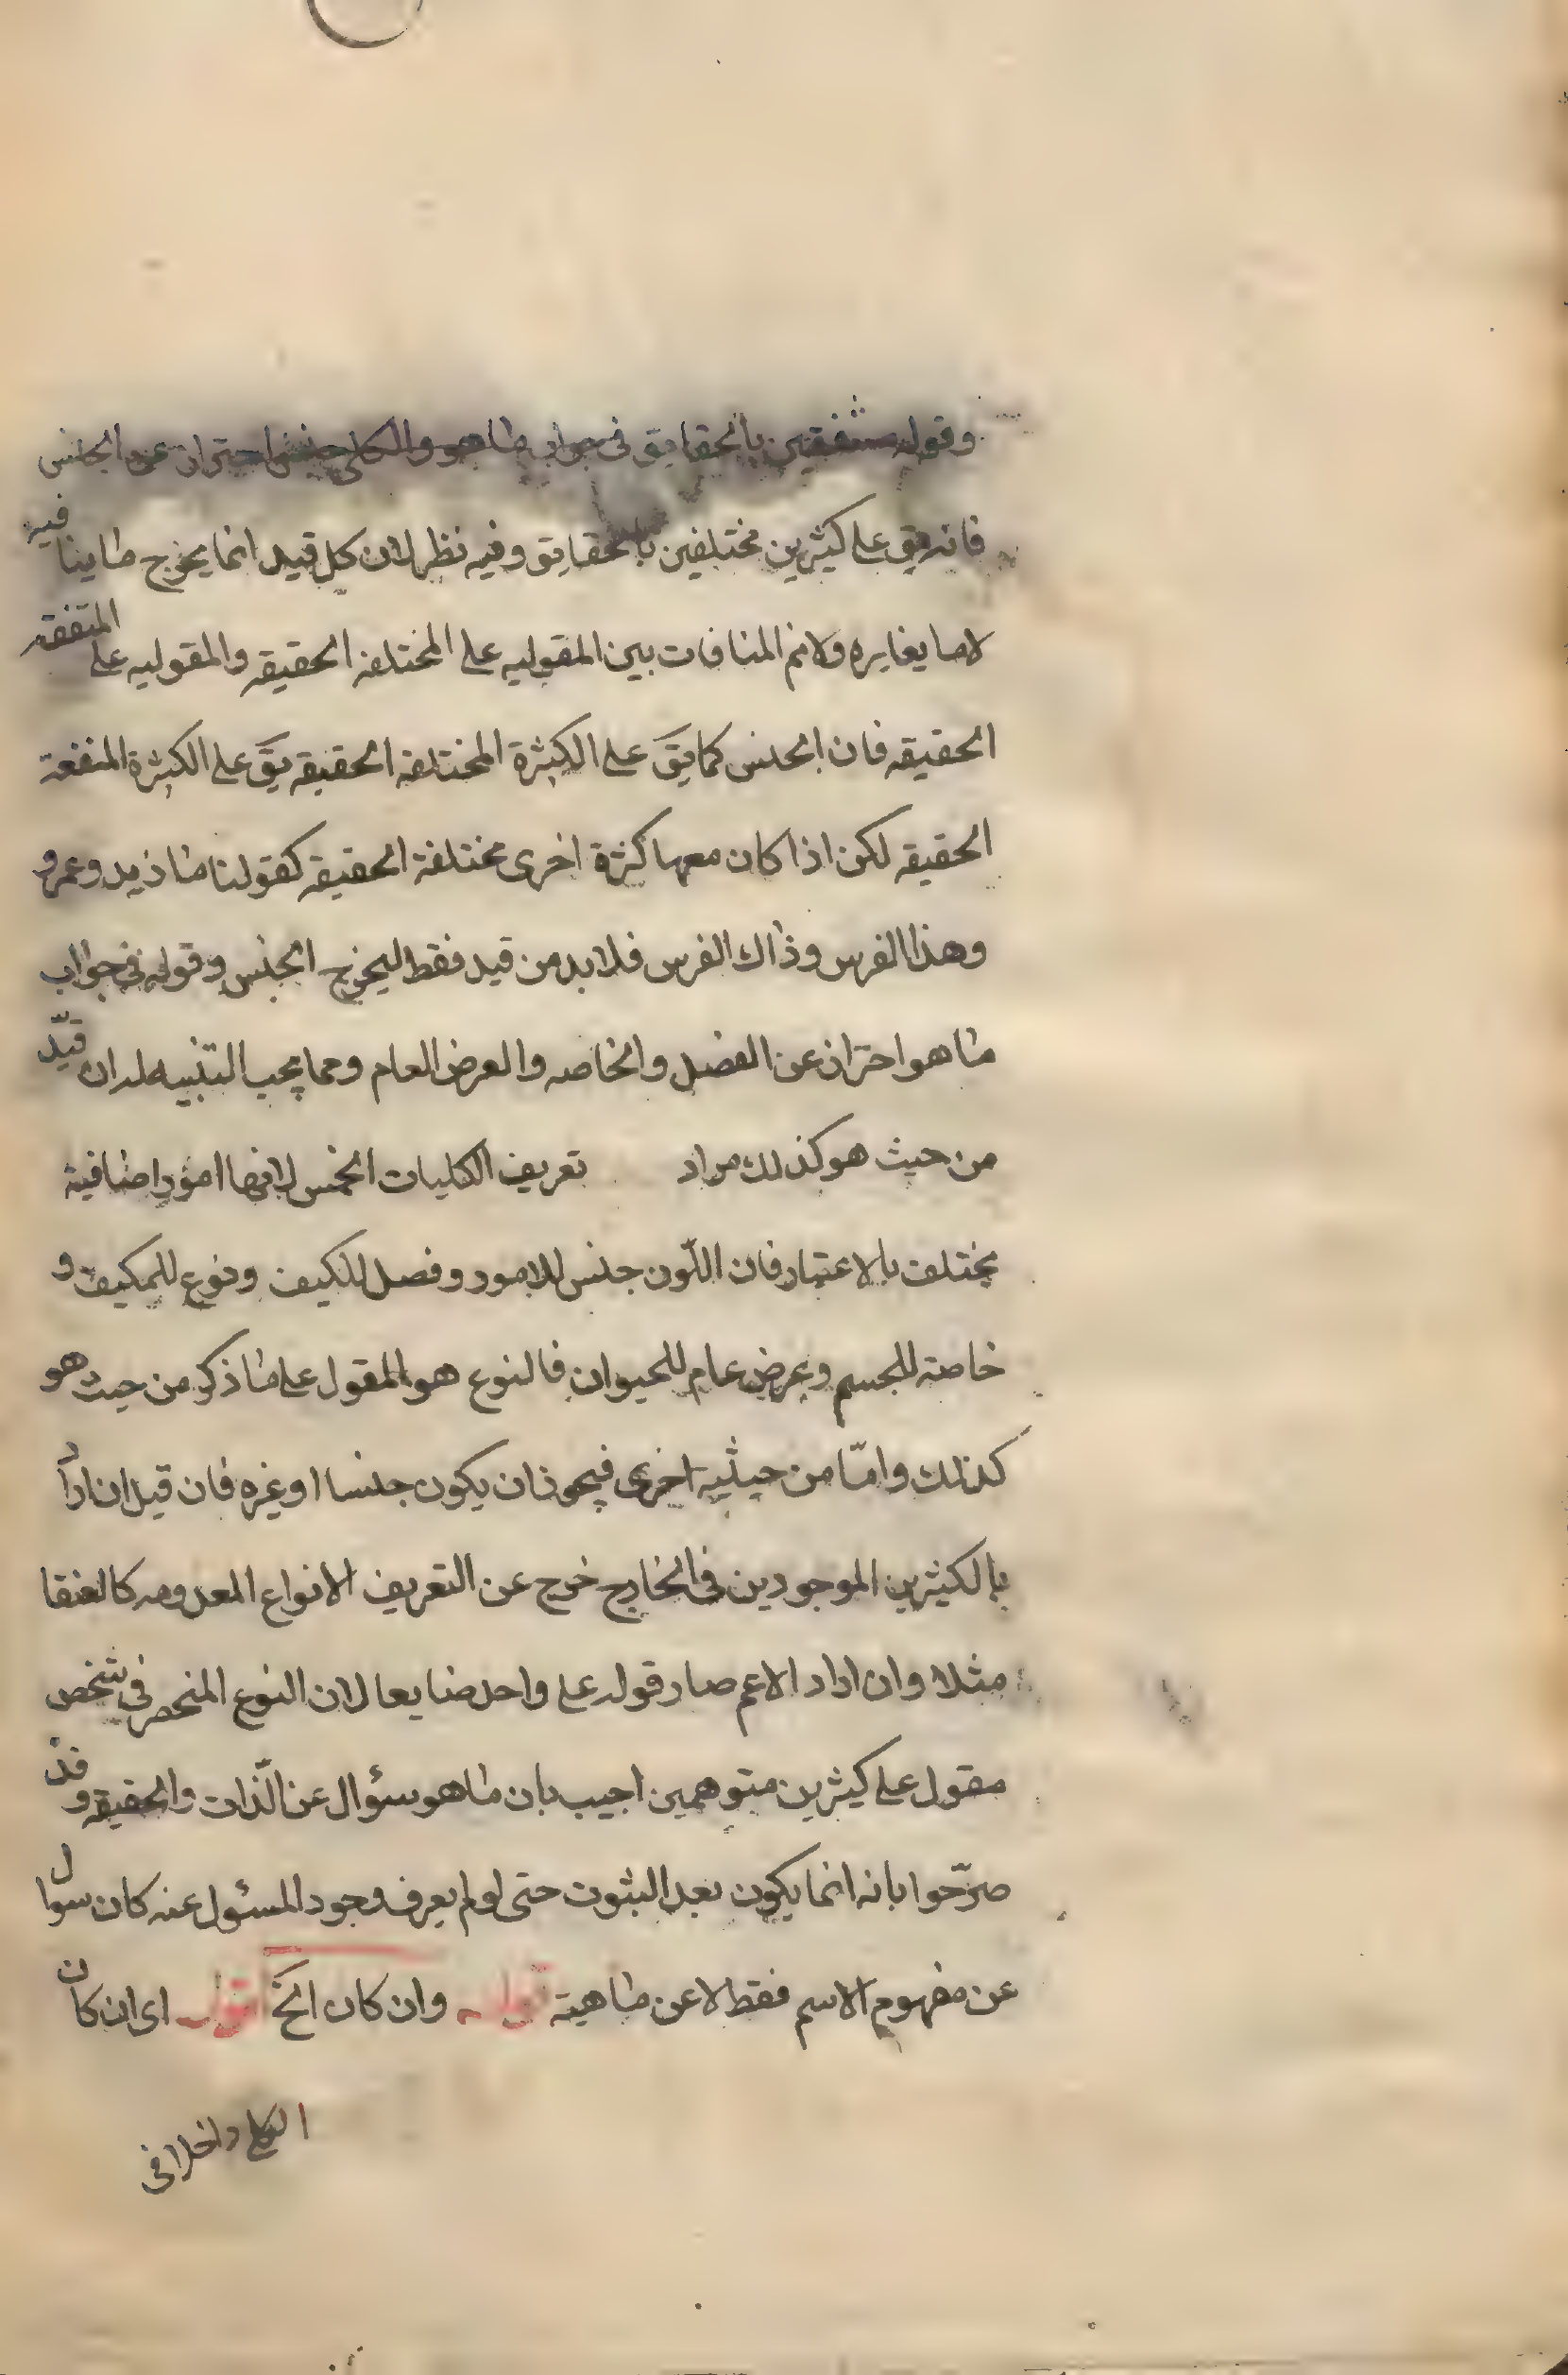 وقوله متفقين بالحقايق فى جواب ما هو والكلى جنس احتراز عن الجنس
فانه يق على كثيرين مختلفين بالحقايق وفيه نظر لان كل قيد انما يخرج ما ينافيه
لا ما يغايره ولا نم المنافات بين المقوليه على المختلفه الحقيقه والمقوليه على المتفقه
الحقيقه فان الجنس كما يقَ على الكثيرة المختلفه الحقيقه يقَ على الكثيرة المتفقة
الحقيقه لكن اذا كان معها كثرة اخرى مختلفة الحقيقه كقولنا ما زيد وعمرو
وهذا الفرس وذاك الفرس فلا بد من قيد فقط ليخرج الجنس وقوله فى جواب
ما هو احتراز عن الفصل والخاصه والعرض العام ومما يجب التنبيه له ان قيّد
من حيث هو كذلك مراد تعريف الكليات الخمس لانها امور اضافية
يختلف بالاعتبار فان اللّون جنس للاسود وفصل للكيف ونوع للمكيف و
خاصة للجسم وعرض عام للحيوان فالنوع هو المقول على ما ذكر من حيث هو
كذلك وامّا من حيثيه اخرى فيجوز ان يكون جنسا او غيره فان قيل ان اراد
بالكثيرين الموجودين فى الخارج خرج عن التعريف الانواع المعدومه كالعنقا
مثلا وان اراد الاعم صار قوله على واحد ضايعا لان النوع المنحصر فى شخص
مقول على كثيرين متوهمين اجيب بان ما هو سؤال عن الّذات والحقيقه وقد
صرّحوا بانه انما يكون بعد الثبوت حتى لو لم يعرف وجود المسئول عنه كان سوال
عن مفهوم الاسم فقط لا عن ماهية قوله وان كان الخَ اقول اى ان كان
الكلى داخلا فى